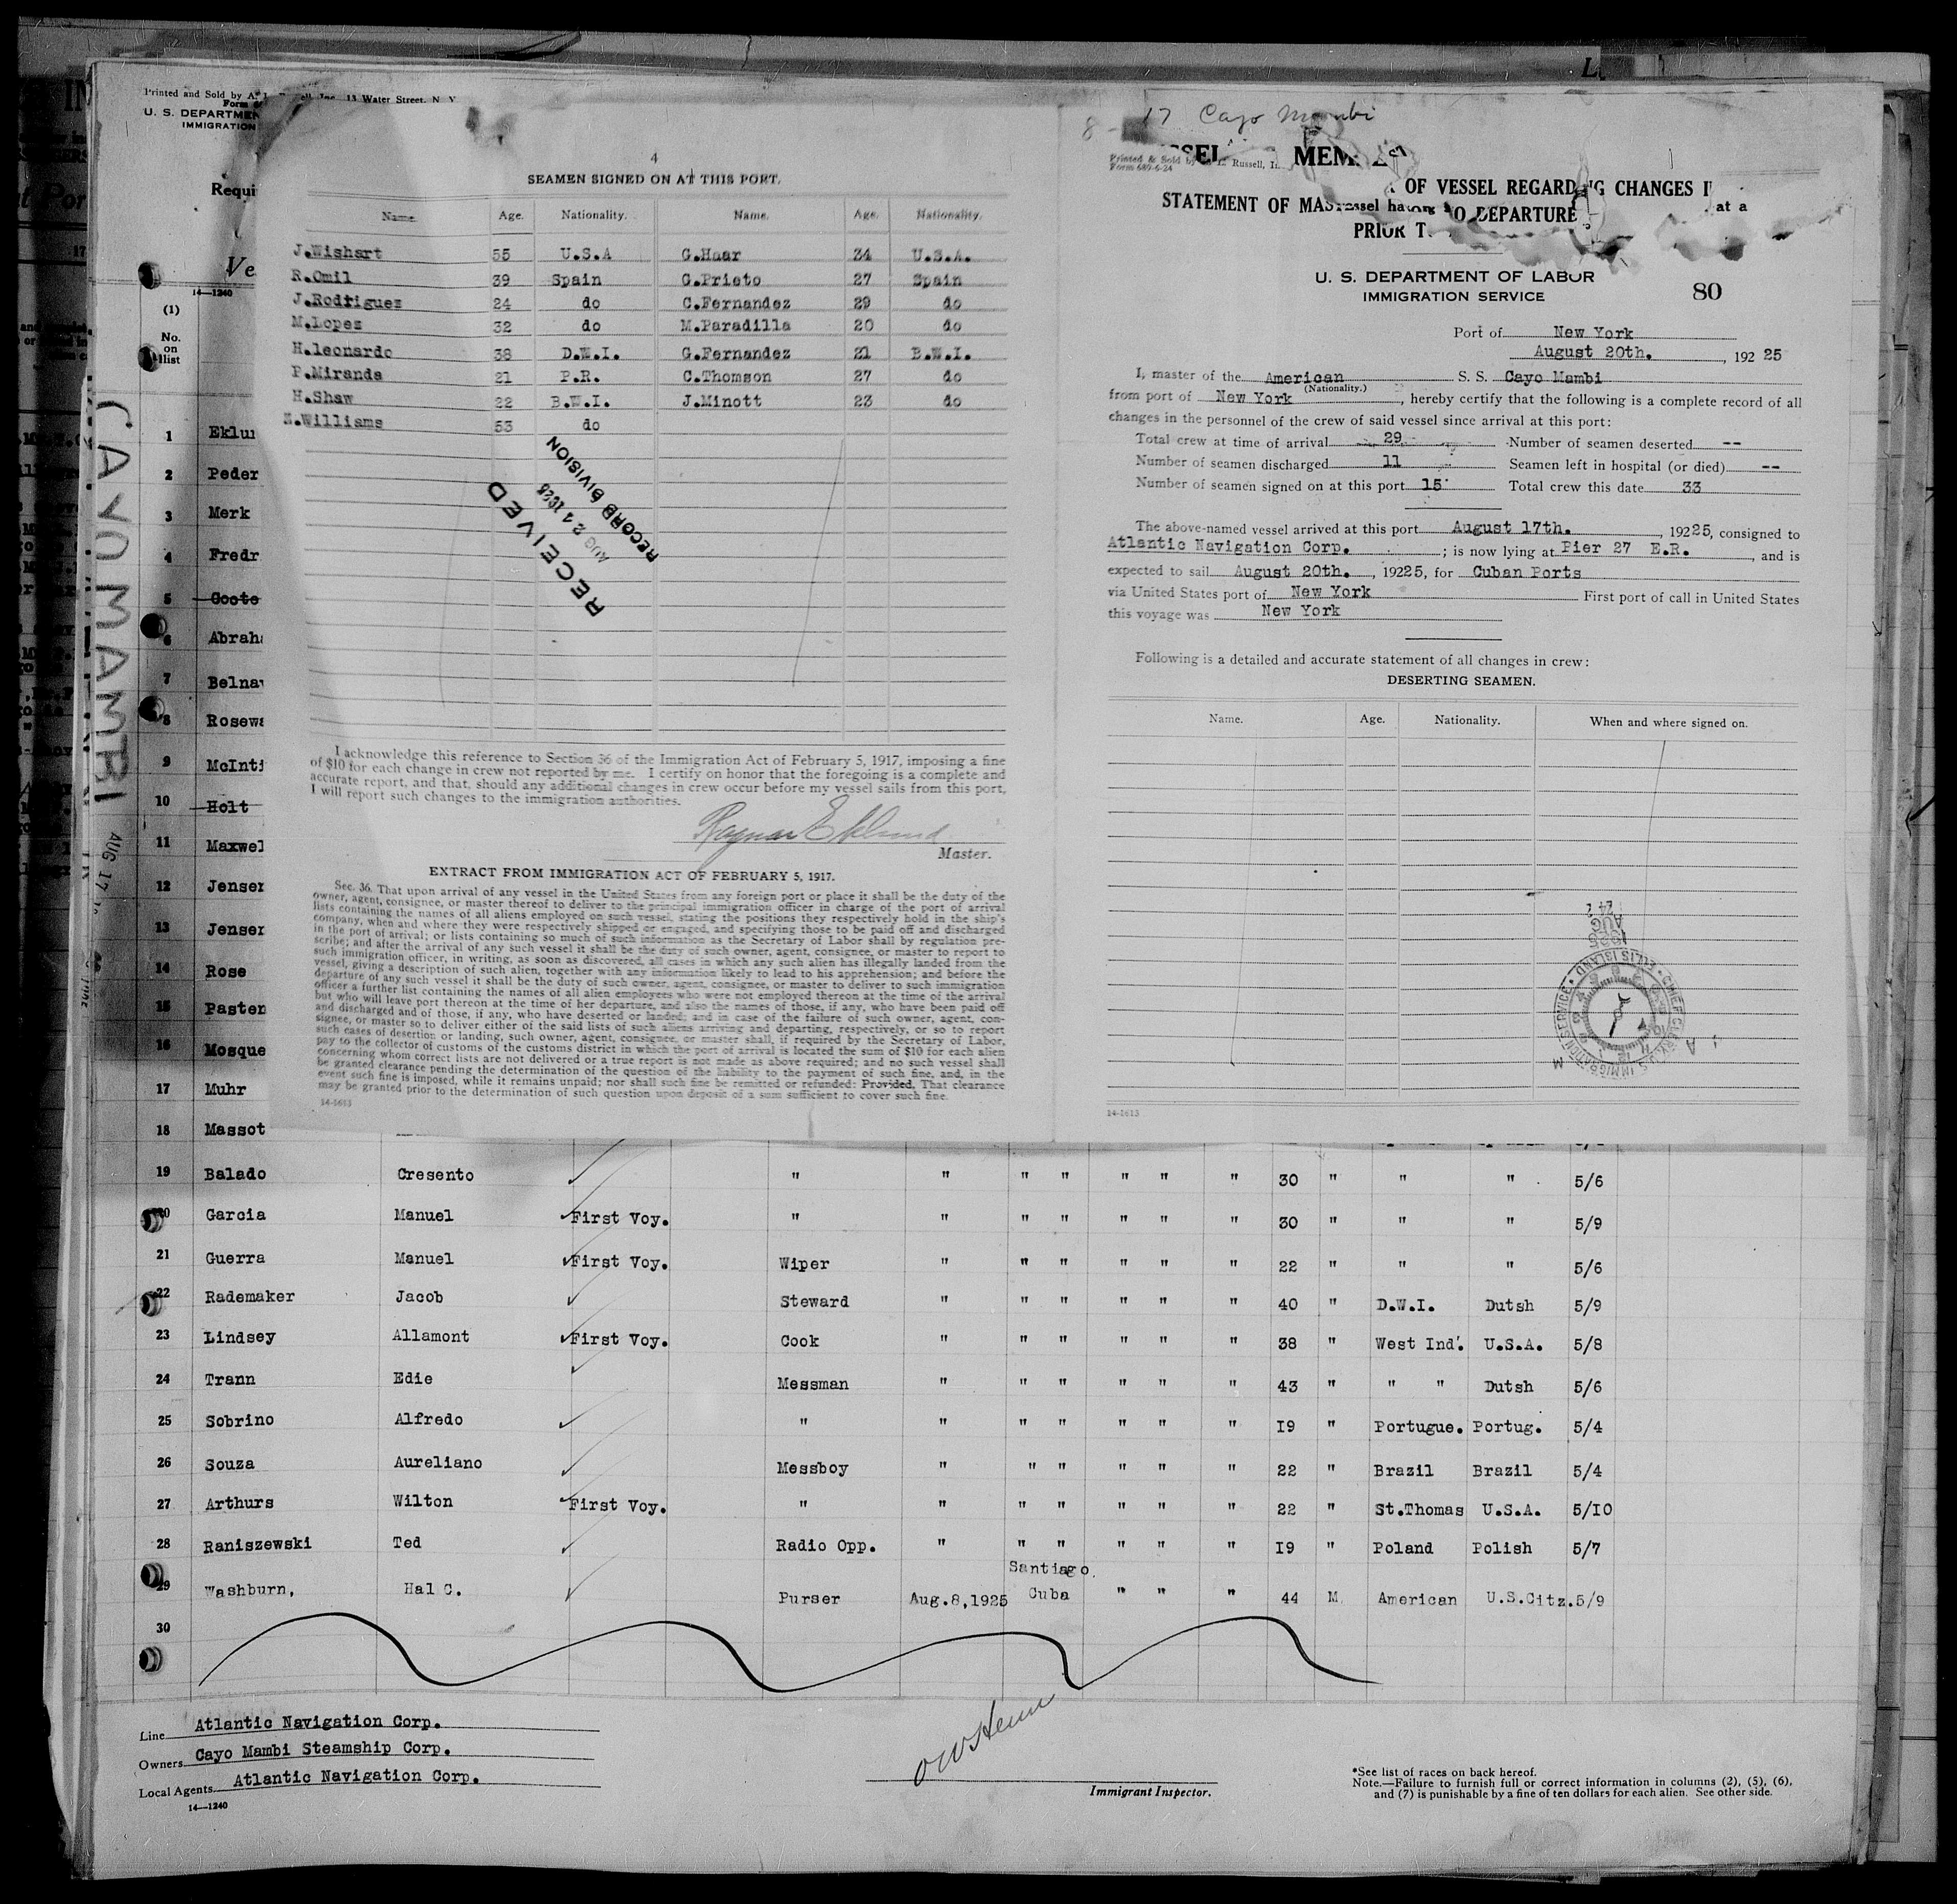 Printed and Sold by A. L. 13 Water Street, N. Y.
Form
U. S. DEPARTMEN
IMMIGRATION
Requi
Ve
14—1240
(1)
No.
on
list
CAYO MAMBI
AUG 17
1 Eklu
2 Peder
3 Merk
4 Fredr
5 Coote
6 Abrah
7 Belna
8 Rosew
9 McInt
10 Holt
11 Maxwel
12 Jenser
13 Jenser
14 Rose
15 Paster
16 Mosque
17 Muhr
18 Massot
4
SEAMEN SIGNED ON AT THIS PORT.
Name. Age. Nationality. Name. Age. Nationality.
J.Wishart 55 U.S.A G.Haar 34 U.S.A.
R.Omil 39 Spain G.Prieto 27 Spain
J.Rodriguez 24 do C.Fernandez 29 do
M.Lopez 32 do M.Paradilla 20 do
H.leonardo 38 D.W.I. G.Fernandez 21 B.W.I.
P.Miranda 21 P.R. C.Thomson 27 do
H.Shaw 22 B.W.I. J.Minott 23 do
.Williams 53 do
RECEIVED
AUG 21 1925
RECORD DIVISION
I acknowledge this reference to Section 36 of the Immigration Act of February 5, 1917, imposing a fine
of $10 for each change in crew not reported by me. I certify on honor that the foregoing is a complete and
accurate report, and that, should any additional changes in crew occur before my vessel sails from this port,
I will report such changes to the immigration authorities.
Ragnar Eklund
Master.
EXTRACT FROM IMMIGRATION ACT OF FEBRUARY 5, 1917.
Sec. 36. That upon arrival of any vessel in the United States from any foreign port or place it shall be the duty of the
owner, agent, consignee, or master thereof to deliver to the principal immigration officer in charge of the port of arrival
lists containing the names of all aliens employed on such vessel, stating the positions they respectively hold in the ship's
company, when and where they were respectively shipped or engaged, and specifying those to be paid off and discharged
in the port of arrival; or lists containing so much of such information as the Secretary of Labor shall by regulation pre-
scribe; and after the arrival of any such vessel it shall be the duty of such owner, agent, consignee, or master to report to
such immigration officer, in writing, as soon as discovered, all cases in which any such alien has illegally landed from the
vessel, giving a description of such alien, together with any information likely to lead to his apprehension; and before the
departure of any such vessel it shall be the duty of such owner, agent, consignee, or master to deliver to such immigration
officer a further list containing the names of all alien employees who were not employed thereon at the time of the arrival
but who will leave port thereon at the time of her departure, and also the names of those, if any, who have been paid off
and discharged and of those, if any, who have deserted or landed; and in case of the failure of such owner, agent, con-
signee, or master so to deliver either of the said lists of such aliens arriving and departing, respectively, or so to report
such cases of desertion or landing, such owner, agent, consignee, or master shall, if required by the Secretary of Labor,
pay to the collector of customs of the customs district in which the port of arrival is located the sum of $10 for each alien
concerning whom correct lists are not delivered or a true report is not made as above required; and no such vessel shall
be granted clearance pending the determination of the question of the liability to the payment of such fine, and, in the
event such fine is imposed, while it remains unpaid; nor shall such fine be remitted or refunded: Provided, That clearance
may be granted prior to the determination of such question upon deposit of a sum sufficient to cover such fine.
14-1613
8 - 17 Cayo Mambi
Printed & Sold by Russell, I
Form 689-6-24
SSEL MEM
STATEMENT OF MAS OF VESSEL REGARDING CHANGES I
PRIOR T O DEPARTURE at a
U. S. DEPARTMENT OF LABOR
IMMIGRATION SERVICE
80
Port of New York
August 20th. , 192 25
I, master of the American S. S. Cayo Mambi
(Nationality.)
from port of New York , hereby certify that the following is a complete record of all
changes in the personnel of the crew of said vessel since arrival at this port:
Total crew at time of arrival 29 Number of seamen deserted --
Number of seamen discharged 11 Seamen left in hospital (or died) --
Number of seamen signed on at this port 15 Total crew this date 33
The above-named vessel arrived at this port August 17th. , 19225, consigned to
Atlantic Navigation Corp. ; is now lying at Pier 27 E.R. , and is
expected to sail August 20th. , 19225, for Cuban Ports
via United States port of New York First port of call in United States
this voyage was New York
Following is a detailed and accurate statement of all changes in crew:
DESERTING SEAMEN.
Name. Age. Nationality. When and where signed on.
1925
AUG
CHIEF CLERK U.S. IMMIGRATION SERVICE ELLIS ISLAND
14-1613
19 Balado Cresento " " " " " " " 30 " " " 5/6
20 Garcia Manuel First Voy. " " " " " " " 30 " " " 5/9
21 Guerra Manuel First Voy. Wiper " " " " " " 22 " " " 5/6
22 Rademaker Jacob Steward " " " " " " 40 " D.W.I. Dutsh 5/9
23 Lindsey Allamont First Voy. Cook " " " " " " 38 " West Ind'. U.S.A. 5/8
24 Trann Edie Messman " " " " " " 43 " " " Dutsh 5/6
25 Sobrino Alfredo " " " " " " " I9 " Portugue. Portug. 5/4
26 Souza Aureliano Messboy " " " " " " 22 " Brazil Brazil 5/4
27 Arthurs Wilton First Voy. " " " " " " " 22 " St.Thomas U.S.A. 5/I0
28 Raniszewski Ted Radio Opp. " " " " " " I9 " Poland Polish 5/7
29 Washburn, Hal C. Purser Aug.8,1925 Santiago. Cuba " " " 44 M. American U.S.Citz. 5/9
30
Line Atlantic Navigation Corp.
Owners Cayo Mambi Steamship Corp.
Local Agents Atlantic Navigation Corp.
14—1240
Immigrant Inspector.
*See list of races on back hereof.
Note.—Failure to furnish full or correct information in columns (2), (5), (6),
and (7) is punishable by a fine of ten dollars for each alien. See other side.